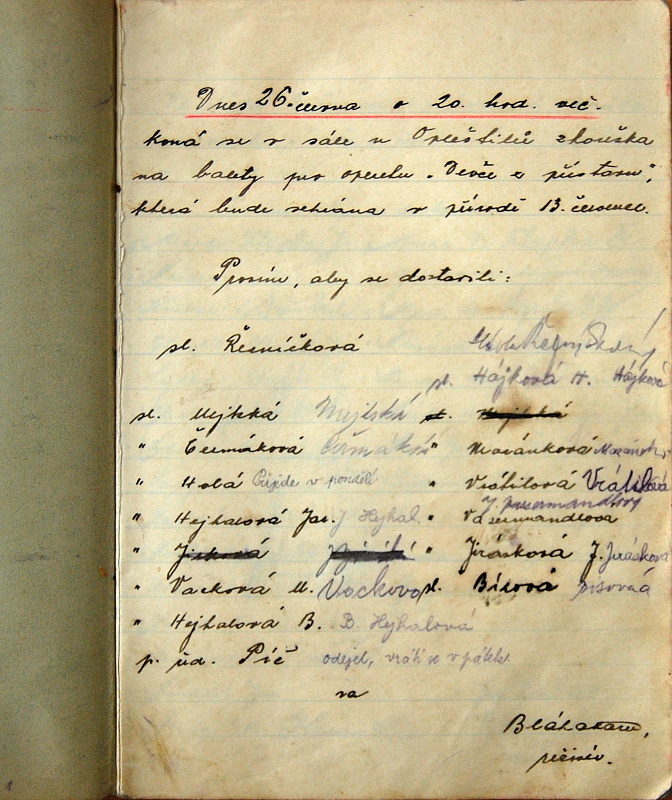 Dnes 26. června o 20. hod. več.
koná se v sále u Opeštilů zkouška
na balety pro operetu „Děvče z přístavu",
která bude sehrána v přírodě 13. července.
Prosím, aby se dostavili:
sl. Řezníčková
sl. Hájková H. Hájková
sl. Mejtská Mejtská sl.
" Čermáková Čermáková " Maránková Maránková
" Holá Přijde v pondělí " Vrátilová Vrátilová
" Hejhalová Jar. J. Hejhal. " Vasermandlova J. Wasermandlova
" " Jirásková J. Jirásková
" Vacková M. Vacková sl. Bísová
" Hejhalová B. B. Hejhalová
p. úd. Píč odejel, vrátí se v pátek.
za
Bláha
režisér.